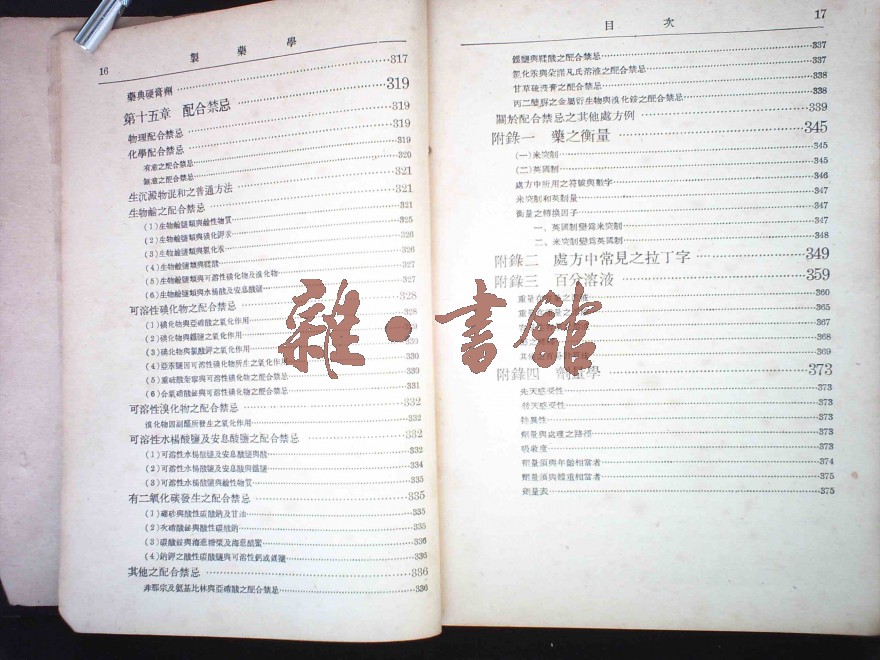 16
製藥學
藥典硬膏劑 317
第十五章 配合禁忌 319
物理配合禁忌 319
化學配合禁忌 319
有意之配合禁忌 320
無意之配合禁忌 321
生沉澱物混和之普通方法 321
生物鹼之配合禁忌 321
(1)生物鹼鹽類與鹼性物質 325
(2)生物鹼鹽類與碘化鉀汞 326
(3)生物鹼鹽類與氯化汞 326
(4)生物鹼鹽類與鞣酸 327
(5)生物鹼鹽類與可溶性碘化物及溴化物 327
(6)生物鹼鹽類與水楊酸及安息酸鹽
可溶性碘化物之配合禁忌 328
(1)碘化物與亞硝酸之氧化作用 328
(2)碘化物與鐵鹽之氧化作用
(3)碘化物與氯酸鉀之氧化作用
(4)亞汞鹽因可溶性碘化物所生之氧化作用 330
(5)重硫酸奎寧與可溶性碘化物之配合禁忌 330
(6)含氧硝酸鉍與可溶性碘化物之配合禁忌 331
可溶性溴化物之配合禁忌 332
溴化物因副醛所發生之氧化作用 332
可溶性水楊酸鹽及安息酸鹽之配合禁忌 332
(1)可溶性水楊酸鹽及安息酸鹽與酸 332
(2)可溶性水楊酸鹽及安息酸與鐵鹽 334
(3)可溶性水楊酸鹽與鹼性物質 335
有二氧化碳發生之配合禁忌 335
(1)硼砂與酸性碳酸鈉及甘油 335
(2)次硝酸鉍與酸性碳酸鈉 335
(3)碳酸銨與海蔥糖漿及海蔥醋蜜 336
(4)鈉鉀之酸性碳酸鹽與可溶性鈣或鎂鹽 336
其他之配合禁忌 336
非那宗及氨基比林與亞硝酸之配合禁忌 336
目次
17
鐵鹽與鞣酸之配合禁忌 337
氯化汞與朵諾凡氏溶液之配合禁忌 337
甘草流浸膏之配合禁忌 338
丙二醯脲之金屬衍生物與溴化銨之配合禁忌 338
關於配合禁忌之其他處方例 339
附錄一 藥之衡量 345
(一)米突制 345
(二)英國制 345
處方中所用之符號與數字 346
米突制和英制量 347
衡量之轉換因子 347
一、英國制變爲米突制 347
二、米突制變爲英國制 348
附錄二 處方中常見之拉丁字 349
附錄三 百分溶液 359
重量 360
重量 365
367
368
其他 369
附錄四 劑量學 373
先天感受性 373
後天感受性 373
特異性 373
劑量與處理之路徑 373
吸收度 373
劑量須與年齡相當者 374
劑量須與體重相當者 375
劑量表 375
雜·書館